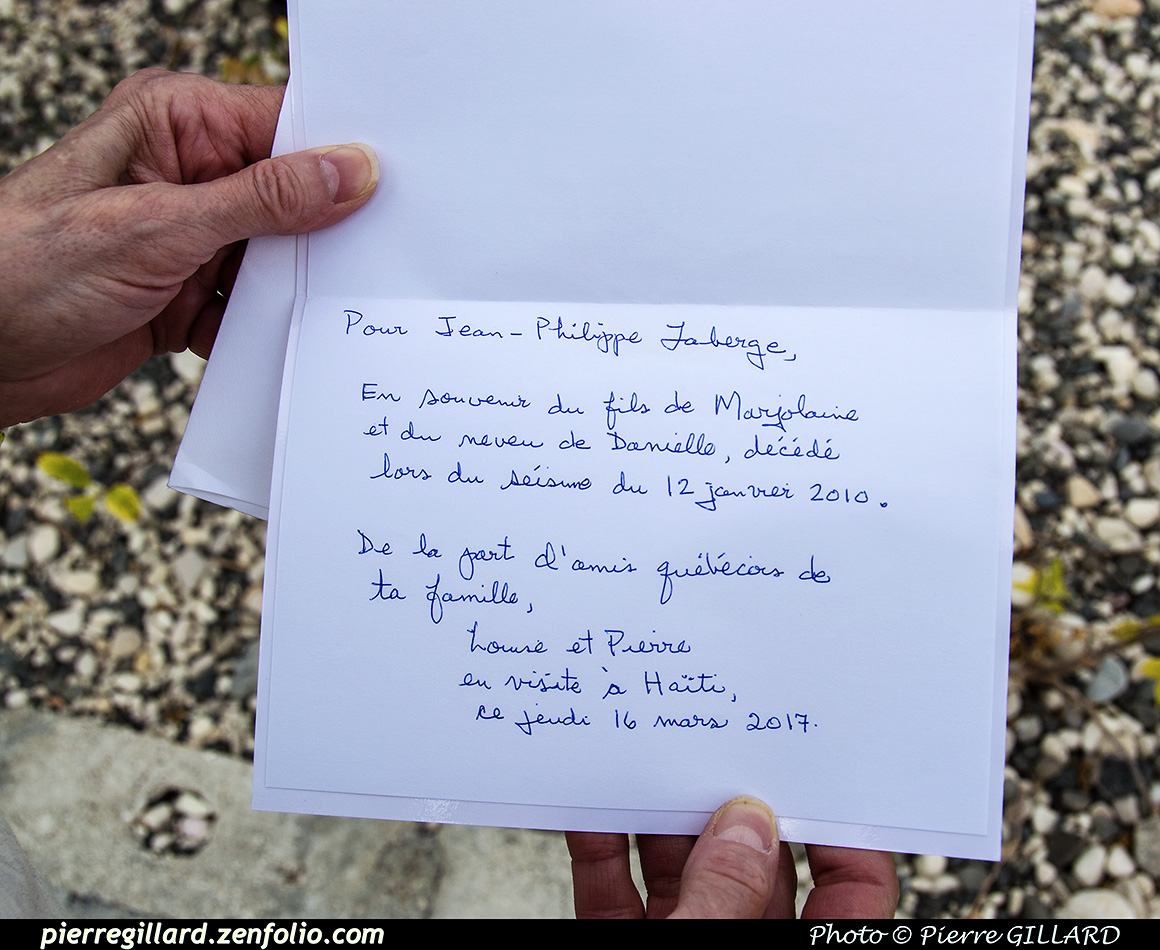 Pour Jean-Philippe Laberge,
En souvenir du fils de Marjolaine
et du neveu de Danielle, décédé
lors du séisme du 12 janvier 2010.
De la part d'amis québécois de
ta famille,
Louise et Pierre
en visite à Haïti,
ce jeudi 16 mars 2017.
pierregillard.zenfolio.com
Photo © Pierre GILLARD